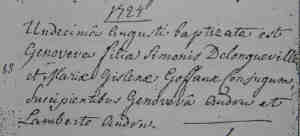 1724
Undecimâ Augusti baptizata est
Genoveva filia Simonis Delongueville
48 et Mariæ Gislenæ Goffaux conjugum,
Suscipientibus Genovevâ Andrus et
Lamberto Andrus.